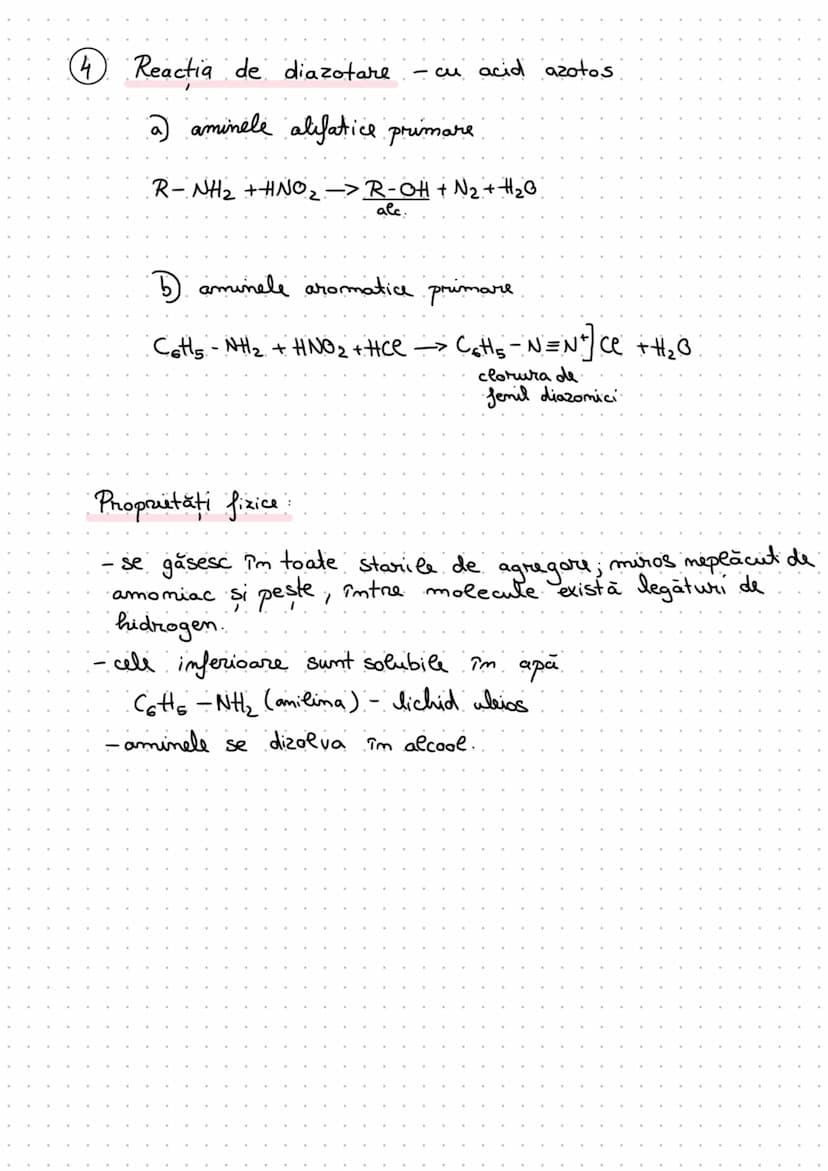 4 Reacția de diazotare - cu acid azotos
a) aminele alifatice primare
R- NH2 + HNO2 -> R-OH + N2 + H2O
alc.
b) aminele aromatice primare
C6H5 - NH2 + HNO2 + HCl -> C6H5 - N≡N+] Cl + H2O
clorura de
fenil diazomici
Proprietăți fizice:
- se găsesc în toate starile de agregare; miros neplăcut de
amoniac și pește, între molecule există legături de
hidrogen.
- cele inferioare sunt solubile în apă
C6H5 - NH2 (anilina) - lichid uleios
- aminele se dizolva în alcool.